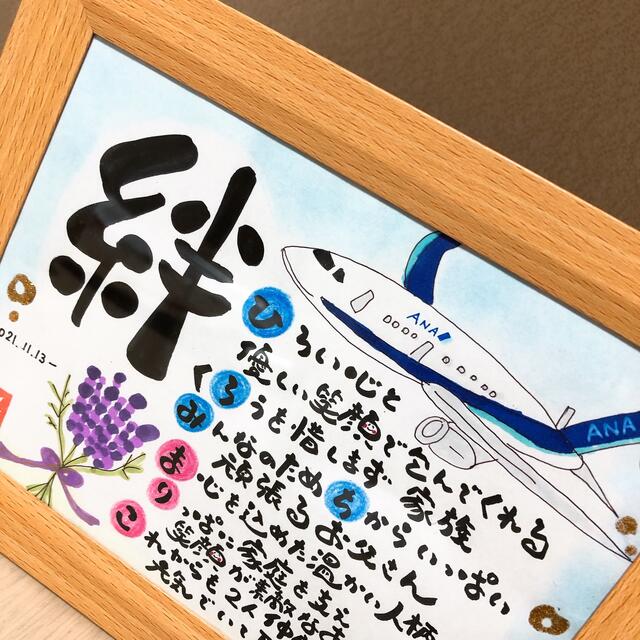 絆
2021.11.13-
ANA
ANA
ひろい心と
優しい笑顔で包んでくれる
くろうを惜しまず家族
みんなのためちからいっぱい
頑張るお父さん
まり心を込めた温かい人柄
っぱに家庭を支え
こ笑顔が素敵なお
れからも2人仲
元気でいて